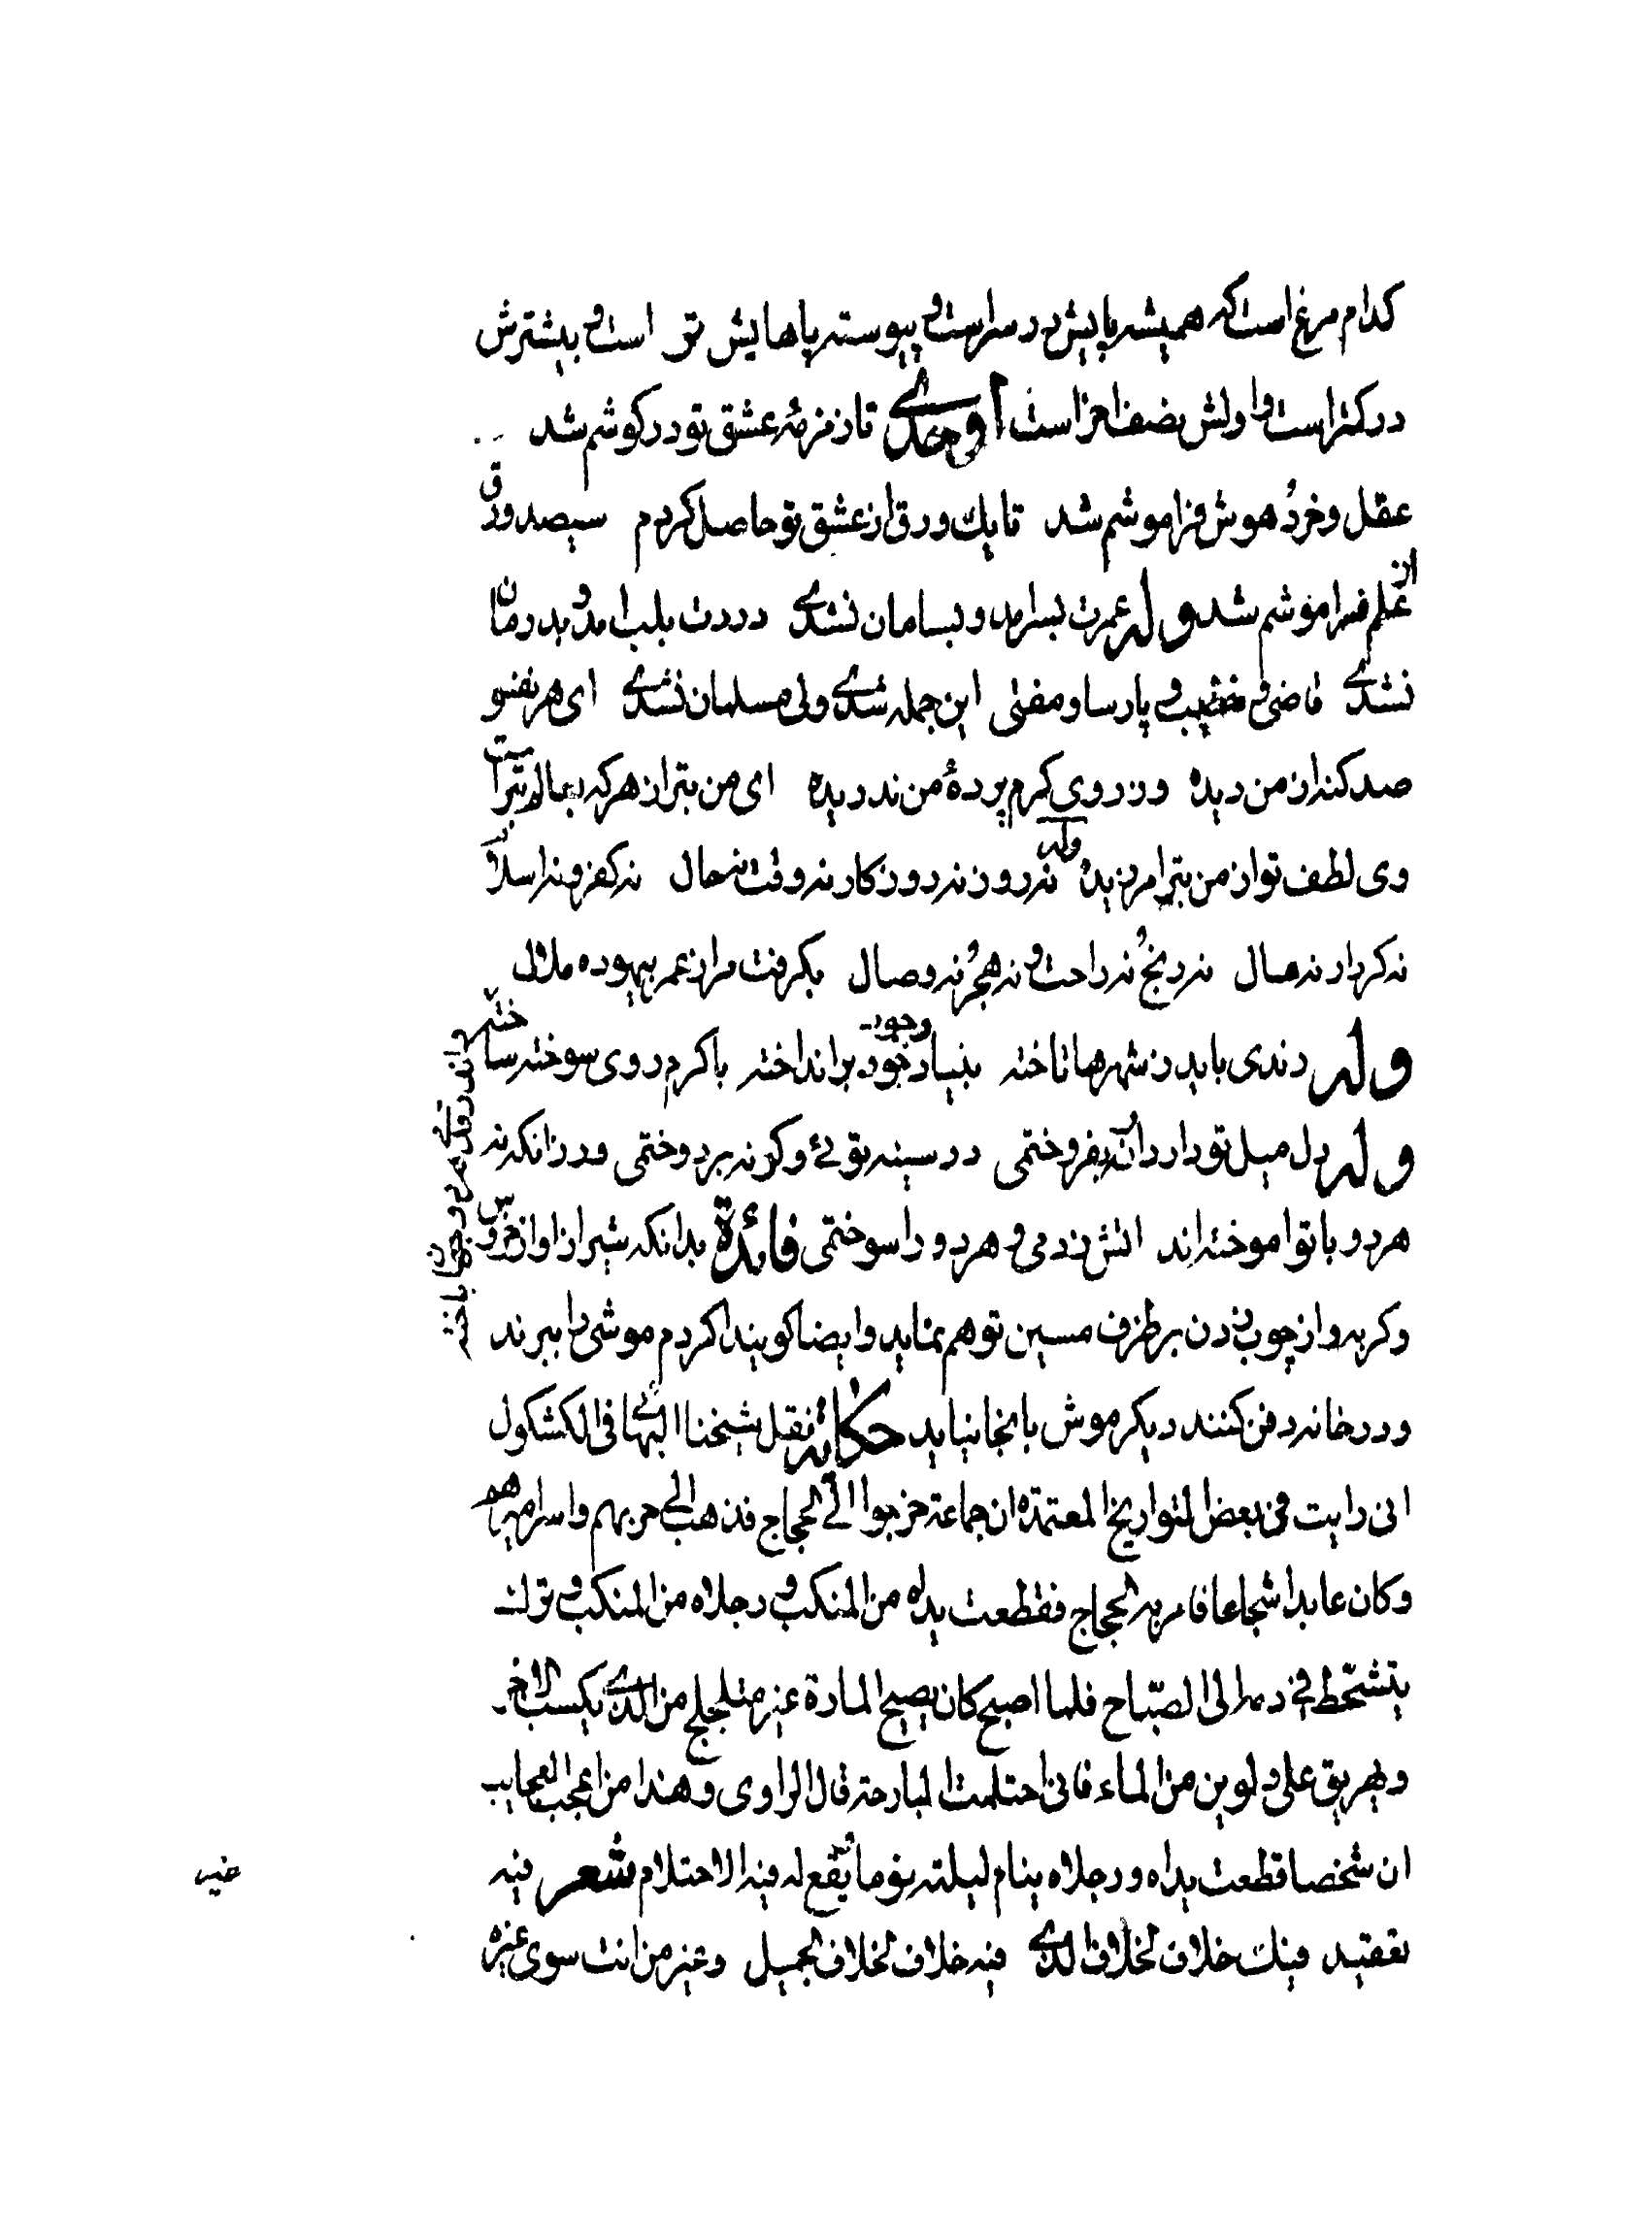 کدام مرغ است که همیشه پایش در سراست و پیوسته پاهایش تر است و بیشترش
در کتر است و اولش نصف اخر است اوحدی تا زمزمهٔ عشق تو در کوشم شد
عقل و خرد و هوش فراموشم شد تا یك ورق از عشق تو حاصل کردم سیصد ورق
از علم فراموشم شد وله عمرت بسر امد و بسامان نشدی دردت بلب امد و بدرمان
نشدی قاضی و خطیب و پارسا و مفتی این جمله شدی ولی مسلمان نشدی ای هر نفسی
صد کنه از من دیده وز روی کرم پردهٔ من ندریده ای من بتر از هر که بعالم بتر است
وی لطف تو از من بتر امرزیده وله نه روز نه روزکار نه وقت نه حال نه کفر و نه اسلام
نه کردار نه حال نه رنج و نه راحت و نه هجر و نه وصال بکرفت مرا ز عمر بیهوده ملال
وله رندی باید ز شهرها تاختهٔ بنیاد وجود خود برانداخته با کرم روی سوخته ساخته
واندر قدمی هر دو جهان باخته
وله دل میل تو دارد ار نه بفروختمی در سینه توئی وکرنه بردوختمی ور زانکه نه
هر دو با تو اموخته اند اتش زدمی و هر دو را سوختمی فائدة بدانکه شیر از اواز خروس
و کربه و از چوب زدن بر طرف مسین توهم نماید و ایضا کویند اکر دم موشی را ببرند
و در خانه دفن کنند دیکر موش بانجا نیاید حکایة نقل شیخنا البهائی فی الکشکول
انی رایت فی بعض التواریخ المعتمدة ان جماعة خرجوا الی الحجاج فذهب الی حربهم و اسر امیرهم
و کان عابدا شجاعا فامر به الحجاج فقطعت یداه من المنکب و رجلاه من المنکب و ترك
یتشحّط فی دمه الی الصّباح فلما اصبح کان یصیح المارة غیر متلجلج من الذی یکسب الاخر
و یهریق علی دلوین من الماء فانی احتلمت البارحة قال الراوی و هذا من اعجب العجایب
ان شخصا قطعت یداه و رجلاه ینام لیلته نوما یقع له فیه الاحتلام شعر فیه
تعقید فیك خلاف لخلاف الذی فیه خلاف لخلاف الجمیل و غیر من انت سوی غیره